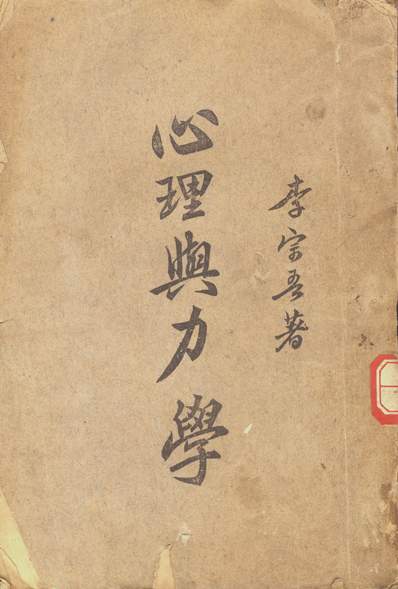 李宗吾著
心理與力學